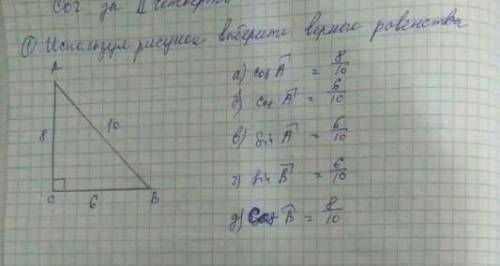 Соч за II четверть
① Используя рисунок выберите верные равенства
A
8
10
C
6
B
а) cos A = 8/10
б) cos A = 6/10
в) sin A = 6/10
г) sin B = 6/10
д) Cos B = 8/10